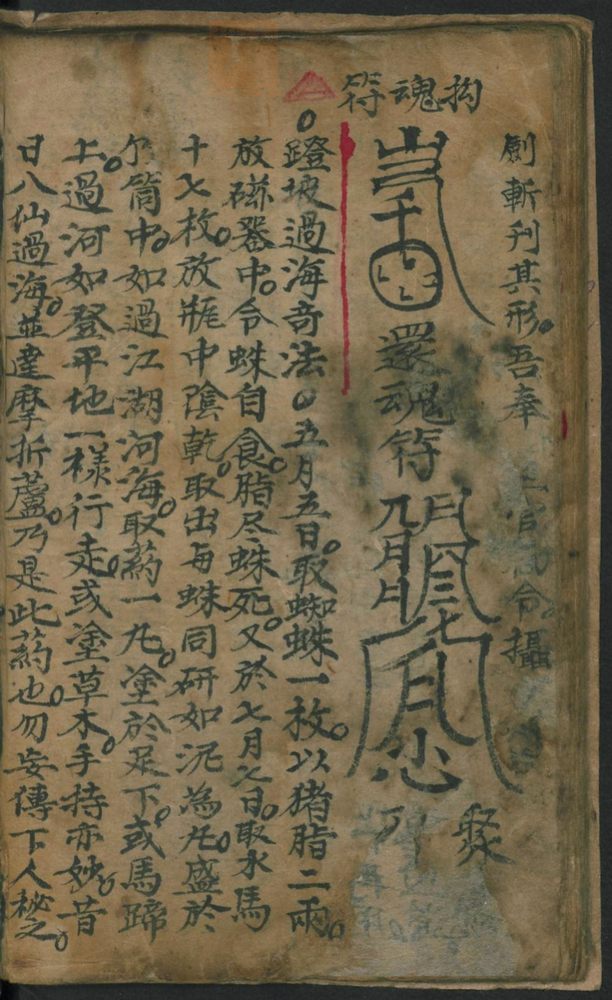 劍斬刋其形吾奉 令攝
拘魂符
還魂符
聚
蹬坡過海奇法○五月五日取蜘蛛一枚以猪脂二兩
放磁器中令蛛自食脂尽蛛死又於七月七日取水馬
十七枚放瓶中陰乾取出每蛛同研如泥為丸盛於
竹筒中如過江湖河海取葯一丸塗於足下或馬蹄
上過河如登平地一樣行走或塗草木手持亦妙昔
日八仙過海並達摩折蘆乃是此葯也勿妄傳下人秘之